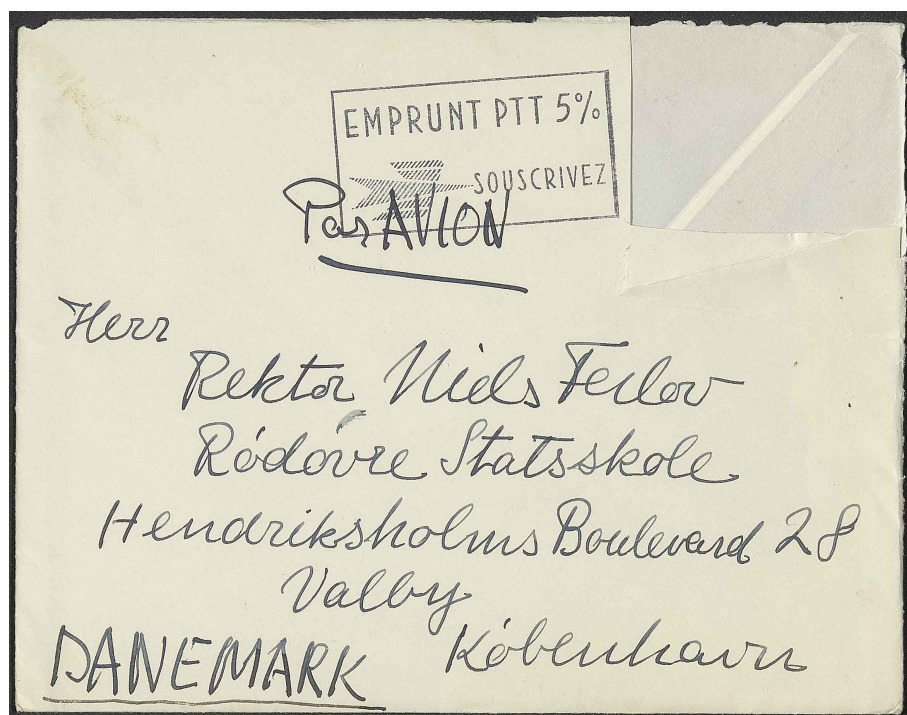 EMPRUNT PTT 5%
SOUSCRIVEZ
Par AVION
Herr
Rektor Niels Ferlov
Ródóvre Statsskole
Hendriksholms Boulevard 28
Valby
DANEMARK Kóbenhavn